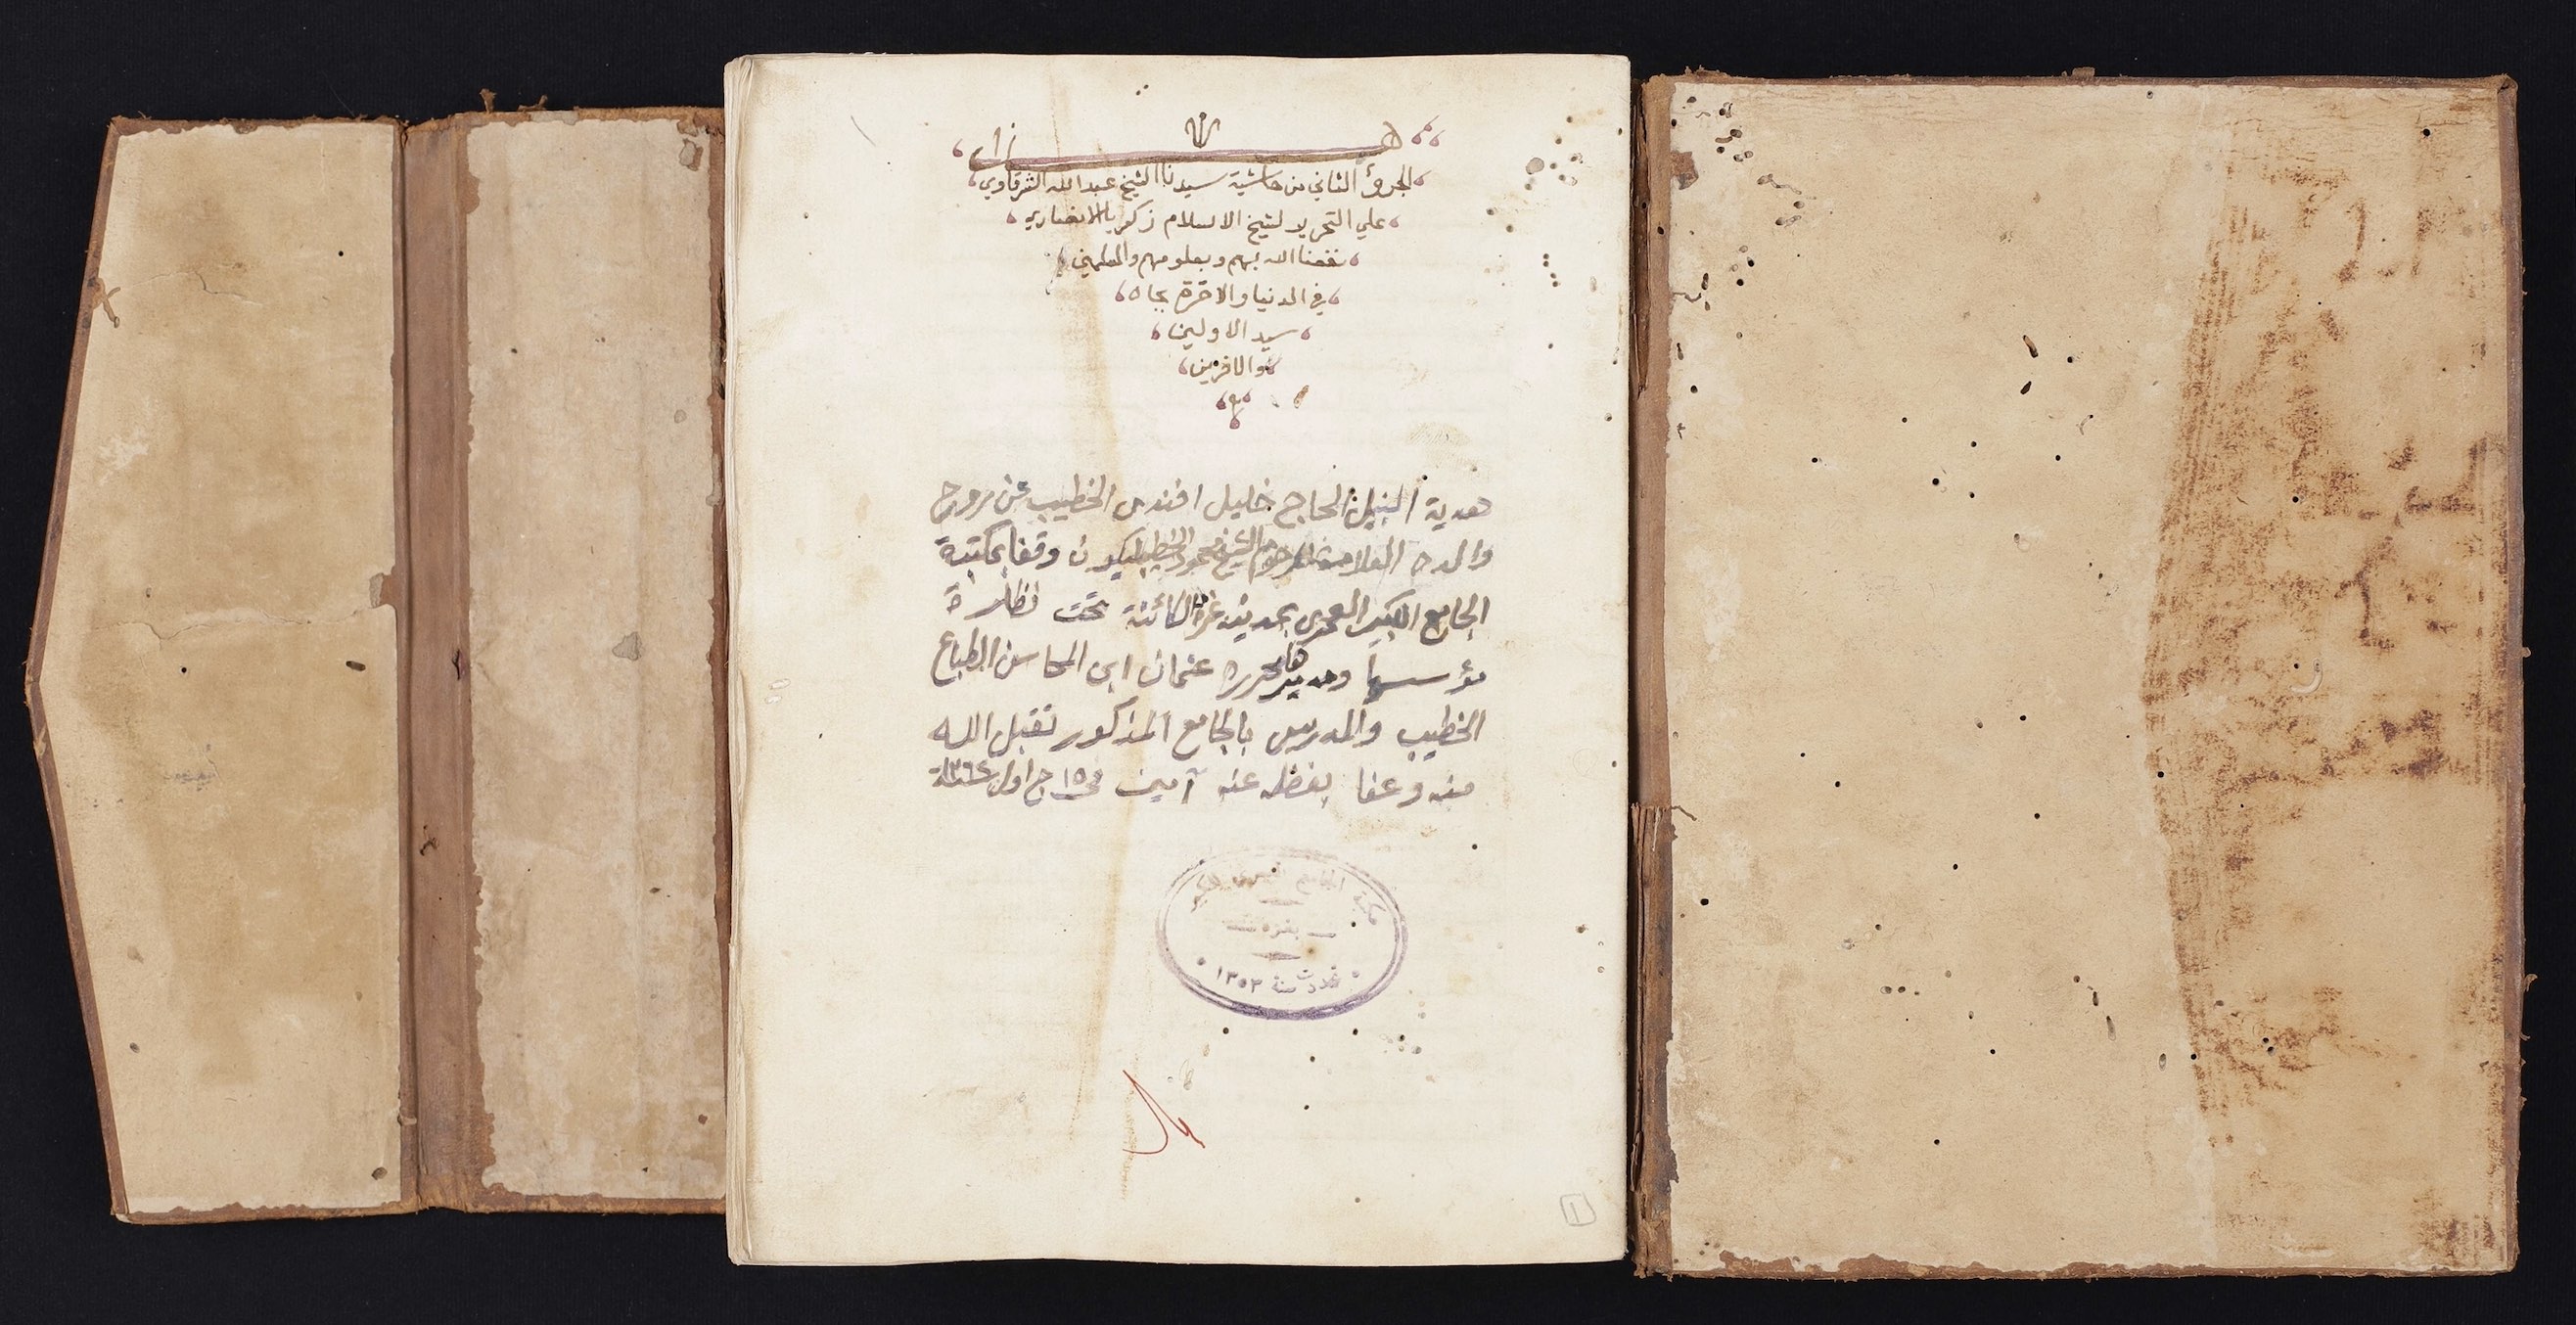 هذا
الجزؤ الثاني من حاشية سيدنا الشيخ عبد الله الشرقاوي
علي التحرير لشيخ الاسلام زكريا الانصاري
نفعنا الله بهم وبعلومهم والمسلمين
في الدنيا والاخرة بجاه
سيد الاولين
والاخرين
هدية النبيل الحاج خليل افندى الخطيب عن روح
والده العلامة المرحوم الشيخ محمود الخطيب ليكون وقفا بمكتبة
الجامع الكبير العمرى بمدينة غزة الكائنة تحت نظارة
مؤسسها ومديرها محرره عثمان ابى المحاسن الطباع
الخطيب والمدرس بالجامع المذكور تقبل الله
منه وعفا بفضله عنه آمين فى ١٥ ج اول سنة ١٣٦٤
مكتبة الجامع العمرى الكبير
بغزه
تجددت سنة ١٣٥٣
١